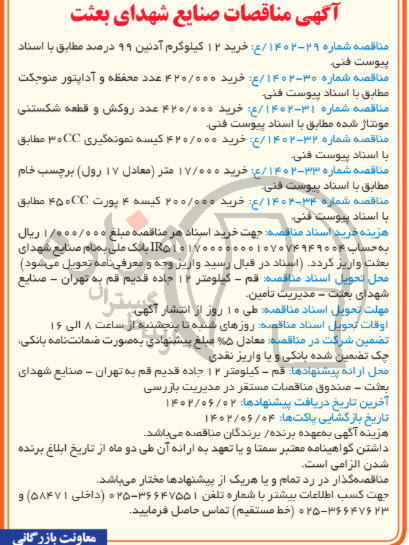 آگهی مناقصات صنایع شهدای بعثت
مناقصه شماره ۲۹-۱۴۰۲/ع: خرید ۱۲ کیلوگرم آدنین ۹۹ درصد مطابق با اسناد
پیوست فنی.
مناقصه شماره ۳۰-۱۴۰۲/ع: خرید ۴۲۰/۰۰۰ عدد محفظه و آداپتور منوجکت
مطابق با اسناد پیوست فنی.
مناقصه شماره ۳۱-۱۴۰۲/ع: خرید ۴۲۰/۰۰۰ عدد روکش و قطعه شکستنی
مونتاژ شده مطابق با اسناد پیوست فنی.
مناقصه شماره ۳۲-۱۴۰۲/ع: خرید ۴۲۰/۰۰۰ کیسه نمونه‌گیری ۳۰CC مطابق
با اسناد پیوست فنی.
مناقصه شماره ۳۳-۱۴۰۲/ع: خرید ۱۷/۰۰۰ متر (معادل ۱۷ رول) برچسب خام
مطابق با اسناد پیوست فنی.
مناقصه شماره ۳۴-۱۴۰۲/ع: خرید ۲۰۰/۰۰۰ کیسه ۴ پورت ۴۵۰CC مطابق
با اسناد پیوست فنی.
هزینه خرید اسناد مناقصه: جهت خرید اسناد هر مناقصه مبلغ ۱/۰۰۰/۰۰۰ ریال
به‌حساب بانک ملی به‌نام صنایع شهدای
بعثت واریز گردد. (اسناد در قبال رسید واریز وجه و معرفی‌نامه تحویل می‌شود)
محل تحویل اسناد مناقصه: قم - کیلومتر ۱۲ جاده قدیم قم به تهران - صنایع
شهدای بعثت - مدیریت تأمین.
مهلت تحویل اسناد مناقصه: طی ۱۰ روز از انتشار آگهی.
اوقات تحویل اسناد مناقصه: روزهای شنبه تا پنجشنبه از ساعت ۸ الی ۱۶
تضمین شرکت در مناقصه: معادل ۵% مبلغ پیشنهادی به‌صورت ضمانت‌نامه بانکی،
چک تضمین شده بانکی و یا واریز نقدی
محل ارائه پیشنهادها: قم - کیلومتر ۱۲ جاده قدیم قم به تهران - صنایع شهدای
بعثت - صندوق مناقصات مستقر در مدیریت بازرسی
آخرین تاریخ دریافت پیشنهادها: ۱۴۰۲/۰۶/۰۲
تاریخ بازگشایی پاکت‌ها: ۱۴۰۲/۰۶/۰۴
هزینه آگهی به‌عهده برنده/ برندگان مناقصه می‌باشد.
داشتن گواهینامه معتبر سمتا و یا تعهد به ارائه آن طی دو ماه از تاریخ ابلاغ برنده
شدن الزامی است.
مناقصه‌گذار در رد تمام و یا هریک از پیشنهادها مختار می‌باشد.
جهت کسب اطلاعات بیشتر با شماره تلفن ۳۶۶۴۷۵۵۱-۰۲۵ (داخلی ۵۸۴۷۱) و
۳۶۶۴۷۶۲۳-۰۲۵ (خط مستقیم) تماس حاصل فرمایید.
معاونت بازرگانی